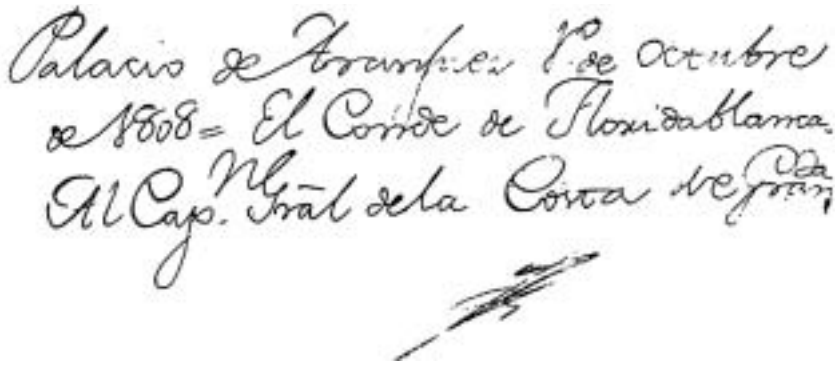 Palacio de Aranjuez 1º de Octubre
de 1808= El Conde de Floridablanca.
Al Cap.ⁿ Grāl dela Costa de Gran.da